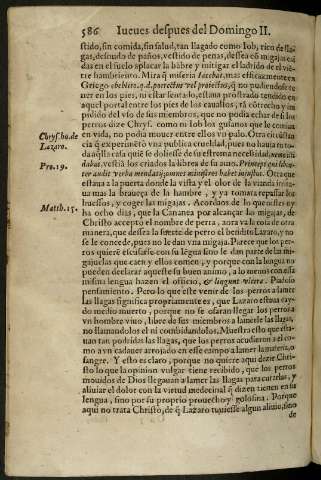 586 Iueues despues del Domingo II.
stido, sin comida, sin salud, tan llagado como Iob, rico de llagas, desnuda de paños, vestido de penas, dessea
das en el suelo aplacar la hãbre y mitigar el ladrido de el vien
tre hambriento. Mira q̃ miseria Iacebat, mas efficazmente en
Griego
ner en los pies, ni estar sentado, estaua prostrado tendido en
aquel portal entre los pies de los cauallos, tã corto y im
pedido del vso de sus miembros, que no podia echar de si los
perros dize Chrys. como ni Iob los gusanos que le comian
Chrys. ho. de
Lazaro.
en vida, no podia mouer entre ellos vn palo. Otra circũstan
cia q̃ experimẽto vna publica crueldad, pues no hauia en to-
da aq̃lla casa quiẽ se doliesse de su estrema necessidad,
Pro. 29.
dabar, vestia los criados la librea de su amo. Princeps qui libẽ
ter audit verba mendacij, omnes ministros habet iniustos. Otra que
estaua a la puerta donde la vista y el olor de la vianda irrita-
ua mas la braueça de la hambre, y ya tomara repassar los
huessos, y coger las migajas. Acordaos de lo que oistes oy
Matth. 15.
ha ocho dias, que la Cananea por alcançar las migajas, de
Christo acceptó el nombre de perra, aora va la cosa de otra
manera, que dessea la suerte de perro el bendito Lazaro, y no
se le concede, pues no le dan vna migaja. Parece que los per-
ros quierẽ escusarlo con su lẽgua sino le dan parte de las mi-
gajuelas que caen y ellos comen, y porque con la lengua no
pueden declarar aqueste su buen animo, a lo menos con essa
misma lengua hazen el officio, & lingunt vlcera. Piadoso
pensamiento. Pero lo que este venir de los perros a lamer
las llagas significa propriamente es, que Lazaro estaua cay-
do medio muerto, porque no se osaran llegar los perros a
vn hombre viuo, libre de sus miembros a lamerle las llagas,
no llamandolos el ni combidandolos. Muestra esto que esta-
uan tan podridas las llagas, que los perros acudieron a el co-
mo a vn cadauer arrojado en esse campo a lamer la materia, o
sangre. Y esto es claro, porque no quiere aqui dezir Chri-
sto lo que la opinion vulgar tiene recibido, que los perros
mouidos de Dios llegauan a lamer las llagas para curarlas, y
aliuiar el dolor con la virtud medecinal q̃ dizen tienen en su
lengua, sino por su proprio prouecho y golosina. Porque
aqui no trata Christo, de q̃ Lazaro tuuiesse algun aliuio, sino
de